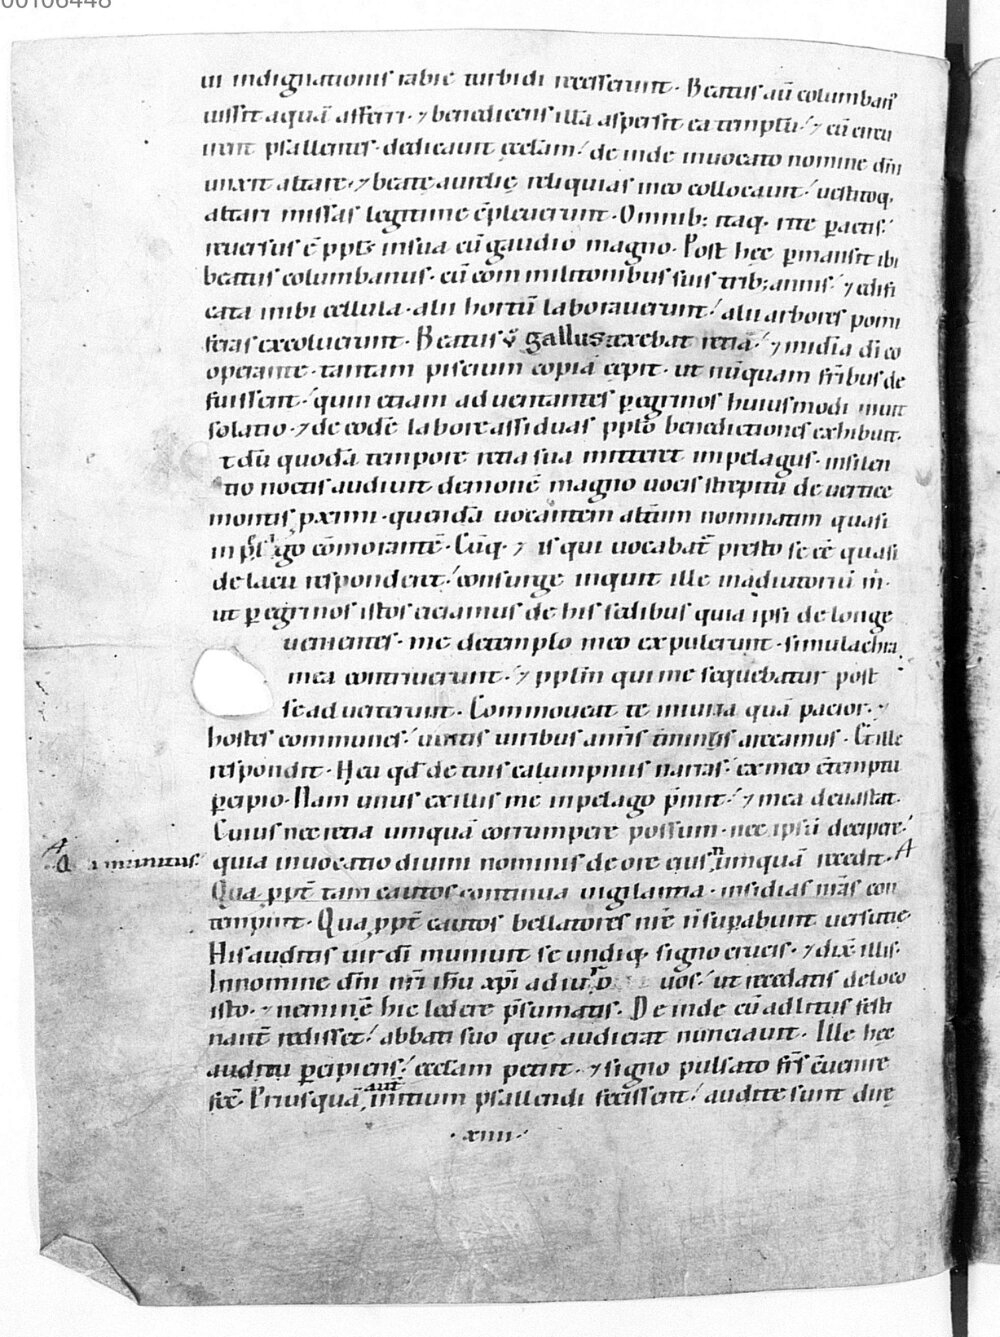 00106448
in indignationis rabie turbidi recesserunt. Beatus aū columbaň
iussit aquā afferri. ⁊ benedicens illā aspersit ea templū. ⁊ cū circu
irent psallentes. dedicauit ęcclam. deinde inuocato nomine dn̄i
unxit altare. ⁊ beatę aurelię reliquias in eo collocauit. uestitoq;
altari missas legitime c̄pleuerunt. Omnib; itaq. rite ꝑactis.
reuersus ē ppls in sua cū gaudio magno. Post hęc ꝑmansit ibi
beatus columbanus. cū commilitonibus suis trib; annis. ⁊ edifi
cata inibi cellula. alii hortū laborauerunt. alii arbores pomi
feras excoluerunt. Beatus v̊ gallus texebat retia. ⁊ mīdia dī co
operante. tantam piscium copiā cepit. ut nūquam frībus de
fuissent. quin etiam aduentantes ꝑegrinos huiusmodi iuuit
solatio. ⁊ de eodē labore assiduas pplo benedictiones exhibuit.
t dū quodā tempore retia sua mitteret in pelagus. in silen
tio noctis audiuit demonē magno uocis strepitu de uertice
montis pximi. quendā uocantem altum nominatim quasi
in pelago cōmorantē. Cūq. ⁊ is qui uocabat presto se eē quasi
de lacu responderet. consurge inquit ille in adiutoriū m̄.
ut ꝑegrinos istos eiciamus de his sedibus quia ipsi de longe
uenientes. me de templo meo expulerunt. simulachra
mea contriuerunt. ⁊ pplm qui me sequebatur post
se aduerterunt. Commoueat te iniuria quā pacior. ⁊
hostes communes. iunctis uiribus arceamus. Et ille
respondit. Heu qd̄ de tuis calumpniis narras. ex meo c̄temptu
ꝑcipio. Nam unus ex illis me in pelago p̄mit. ⁊ mea deuastat.
Cuius nec retia umquā corrumpere possum. nec ipsū decipere.
quia inuocatio diuini nominis de ore eius nūmquā recedit.
Qua ppt̄ tam cautos continua uigilantia. insidias nr̄as con
tempnit. Qua ppt̄ cautos bellatores nr̄e n̄ suꝑabunt uersutie
His auditis uir dī muniuit se undiq. signo crucis. ⁊ dix̄ illis.
In nomine dn̄i nr̄i ihū xp̄i adiuro uos. ut recedatis de loco
isto. ⁊ neminē hic ledere p̄sumatis. Deinde cū ad litus festi
nant̄ redisset. abbati suo que audierat nunciauit. Ille hęc
auditu ꝑcipiens. ęcclam petiit. ⁊ signo pulsato fr̄s c̄uenire
fec̄. Priusquā aut̄ initium psallendi fecissent. audite sunt dirę
.xiiii.